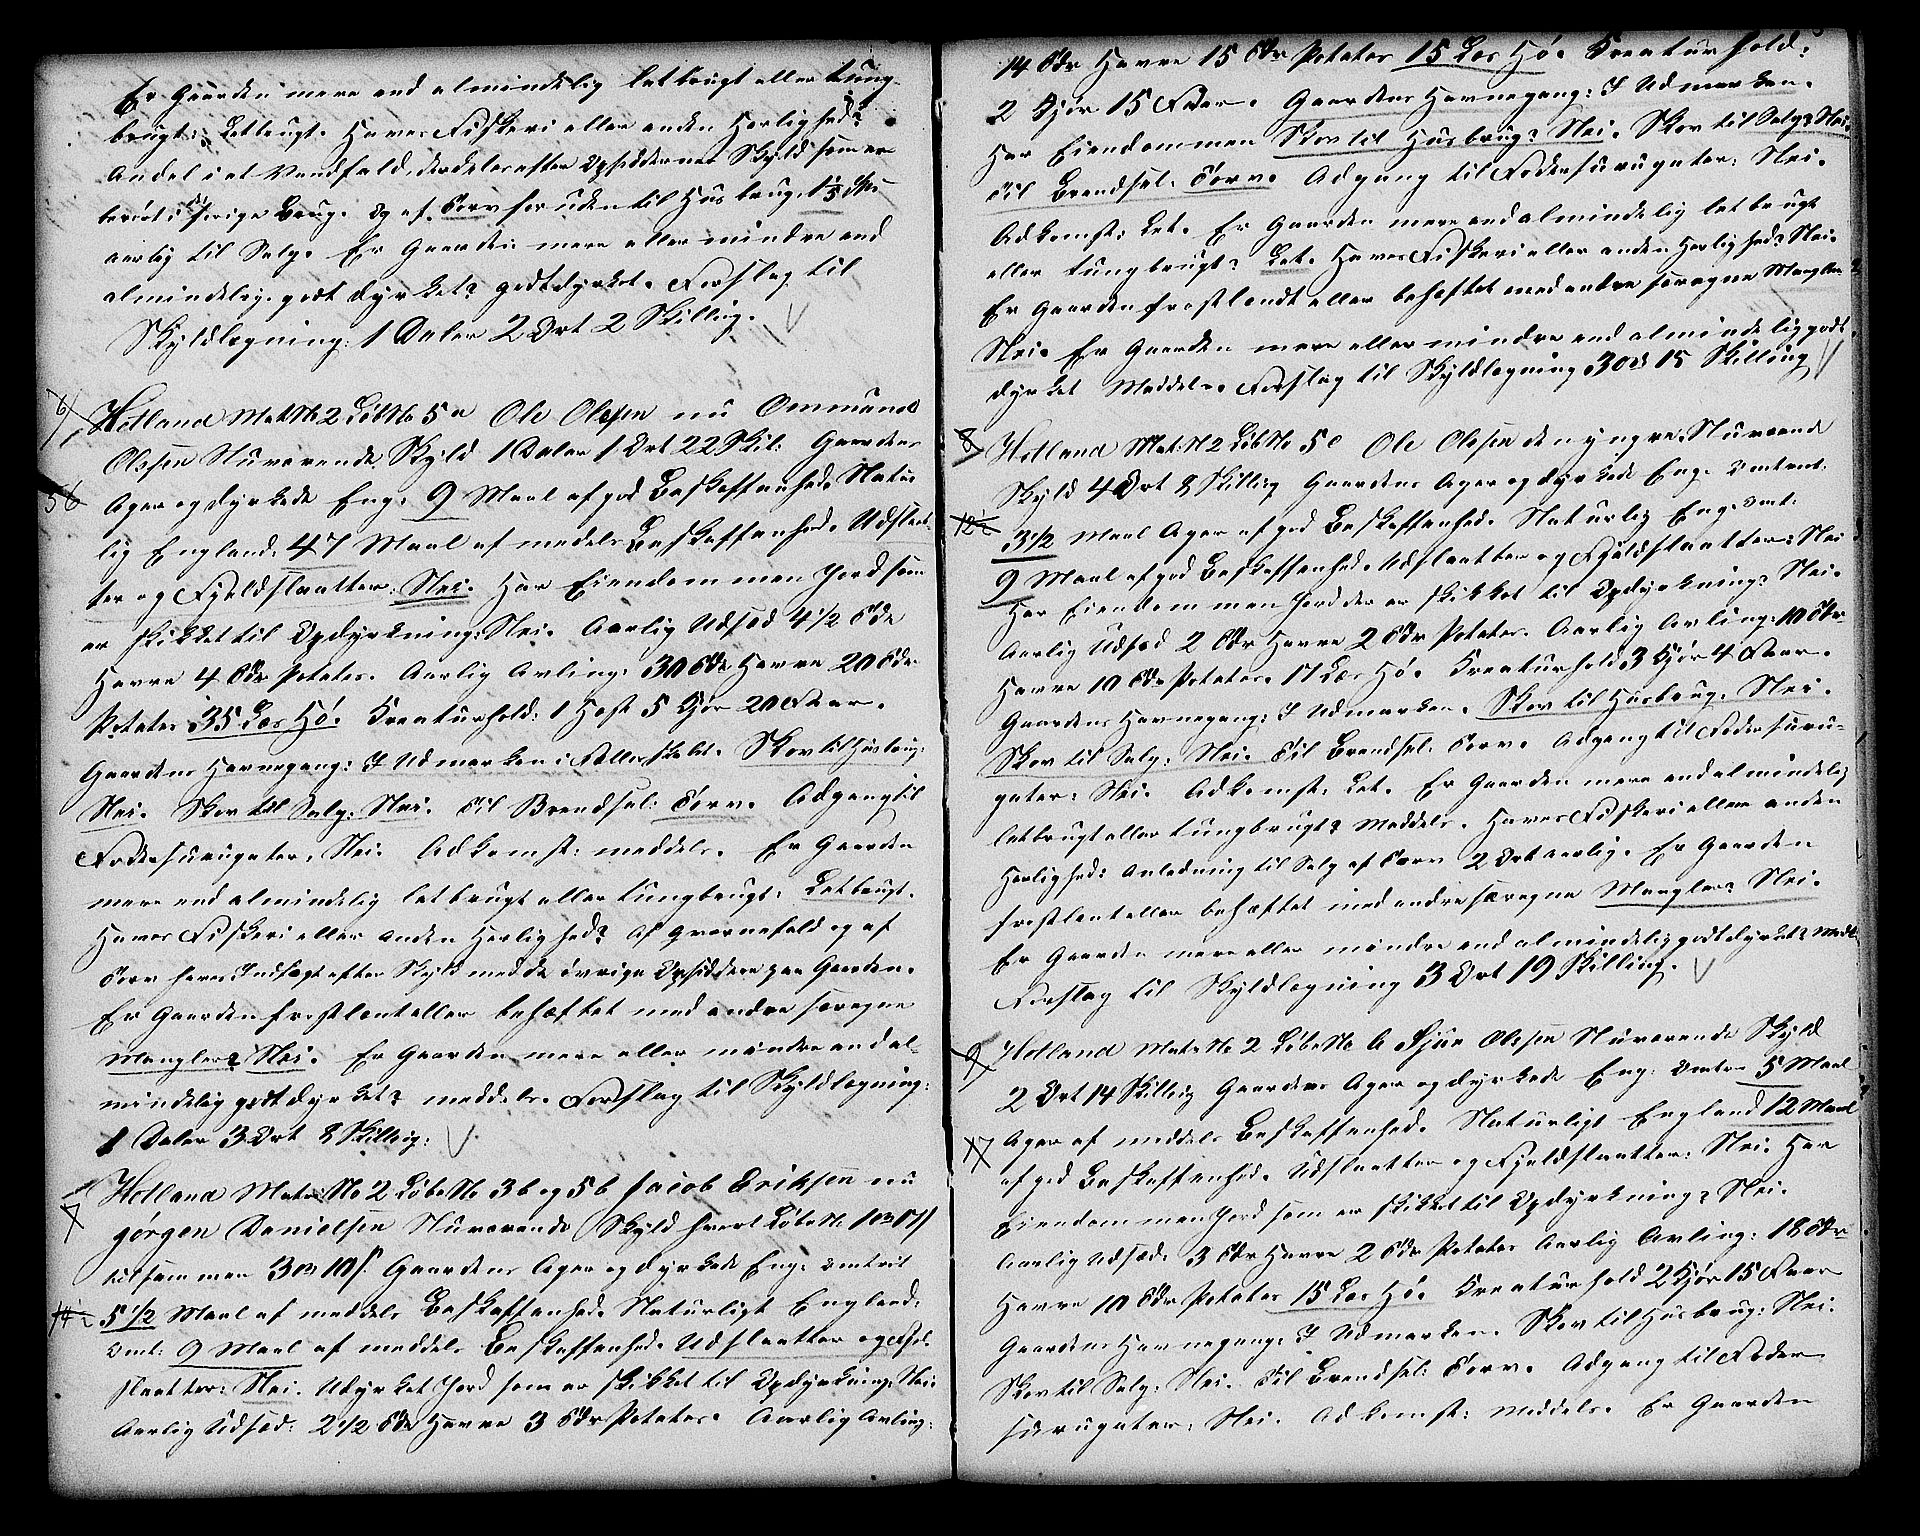 Er Gaarden mere end almindelig letbrugt eller tung-
brugt: Letbrugt. Haves Fiskeri eller anden Herlighed?
Andel i et Vandfald, der deles efter Opsiddernes Skyld som er
berørt i forrige Brug. og af Torv foruden til Husbrug. 1 1/3
aarlig til Salg. Er Gaarden mere eller mindre end
almindelig godt dyrket? godt dyrket. Forslag til
Skyldlægning: 1 Daler 2 Ort 2 Skilling.
6/ Hetland Mat No 2 Løb No 5a Ole Olssen nu Ommund
Olssen Nuværende Skyld 1 Daler 1 Ort 22 Skil: Gaardens
56 Ager og dyrkede Eng: 9 Maal af god Beskaffenhed. Natur
lig England: 47 Maal af meddels Beskaffenhed. Udslaat-
ter og Fjeldslaatter: Nei. Har Eiendommen Jord som
er skikket til Opdyrkning: Nei. Aarlig Udsæd 4 1/2 Tdr
Havre 4 Tdr Potetes. Aarlig Avling: 30 Tdr Havre 20 Tdr
Potetes 35 Læs Hø. Kreaturhold: 1 Hest 5 Kjør 20 Faar.
Gaardens Havnegang: I Udmarken i Fællesskabet. Skov til Husbrug:
Nei. Skov til Salg: Nei. Til Brændsel: Torv. Adgang til
Fodersurugater: Nei. Adkomst: meddels. Er Gaarden
mere end almindelig letbrugt eller tungbrugt: Letbrugt.
Haves Fiskeri eller anden Herlighed? Af Qværnefald og af
Torv haves Indtægt efter Skyld med de øvrige Opsiddere paa Gaarden.
Er Gaarden frostlændt eller behæftet med andre særegne
Mangler? Nei. Er Gaarden mere eller mindre end al-
mindelig godt dyrket? meddels. Forslag til Skyldlægning:
1 Daler 3 Ort 8 Skilling:
7 Hetland Mat: No 2 Løbe No 3b og 5b Jacob Eriksen nu
Jørgen Danielsen Nuværende Skyld hvert Løbe No:
tilsammen Gaardens Ager og dyrkede Eng: omtrent
14 1/2 5 1/2 Maal af meddels Beskaffenhed. Naturligt England:
omt: 9 Maal af meddels Beskaffenhed. Udslaatter og Fjel
slaatter: Nei. Udyrket Jord som er skikket til Opdyrkning: Nei.
Aarlig Udsæd: 2 1/2 Tdr Havre 3 Tdr Potetes. Aarlig Avling:
14 Tdr Havre 15 Tdr Potetes 15 Læs Hø. Kreaturhold:
2 Kjør 15 Faar. Gaardens Havnegang: I Udmarken.
Har Eiendommen Skov til Husbrug? Nei. Skov til Salg? Nei.
Til Brændsel: Torv. Adgang til Fodersurugater: Nei.
Adkomst: Let. Er Gaarden mere end almindelig letbrugt
eller tungbrugt? Let. Haves Fiskeri eller anden Herlighed? Nei.
Er Gaarden frostlændt eller behæftet med andre særegne Mangler?
Nei. Er Gaarden mere eller mindre end almindelig godt
dyrket Meddels. Forslag til Skyldlægning 3 Ort 15 Skilling
8/ Hetland Mat: N 2 Løb No 5c Ole Olssen den yngre. Nuværende
Skyld 4 Ort 8 Skilling Gaardens Ager og dyrkede Eng. Omtrent:
12 1/2 3 1/2 Maal Ager af god Beskaffenhed. Naturlig Eng. Omt:
9 Maal af god Beskaffenhed. Udslaatter og Fjeldslaatter: Nei
Har Eiendommen Jord der er skikket til Opdyrkning? Nei.
Aarlig Udsæd 2 Tdr Havre 2 Tdr Potetes. Aarlig Avling: 10 Tdr
Havre 10 Tdr Potetes. 17 Læs Hø. Kreaturhold: 3 Kjør 4 Faar.
Gaardens Havnegang: I Udmarken. Skov til Husbrug: Nei.
Skov til Salg: Nei. Til Brændsel: Torv. Adgang til Fodersuru-
gater: Nei. Adkomst: Let. Er Gaarden mere end almindelig
letbrugt eller tungbrugt? Meddels. Haves Fiskeri eller anden
Herlighed: Anledning til Salg af Torv 2 Ort aarlig. Er Gaarden
frostlænt eller behæftet med andre særegne Mangler? Nei.
Er Gaarden mere eller mindre end almindelig godt dyrket? Medd:
Forslag til Skyldlægning 3 Ort 19 Skilling.
9/ Hetland Mat: No 2 Løbe No 6 Sjur Olssen Nuværende Skyld
2 Ort 14 Skilling Gaardens Ager og dyrkede Eng: Omtr: 5 Maal
17 Ager af meddels Beskaffenhed. Naturligt England 12 Maal
af god Beskaffenhed. Udslaatter og Fjeldslaatter: Nei. Har
Eiendommen Jord som er skikket til Opdyrkning? Nei.
Aarlig Udsæd: 3 Tdr Havre 2 Tdr Potetes Aarlig Avling: 18 Tdr
Havre 10 Tdr Potetes 15 Læs Hø. Kreaturhold 2 Kjør 15 Faar
Gaardens Havnegang: I Udmarken. Skov til Husbrug: Nei.
Skov til Salg: Nei. Til Brændsel: Torv. Adgang til Foder
surugater: Nei. Adkomst: Meddels. Er Gaarden